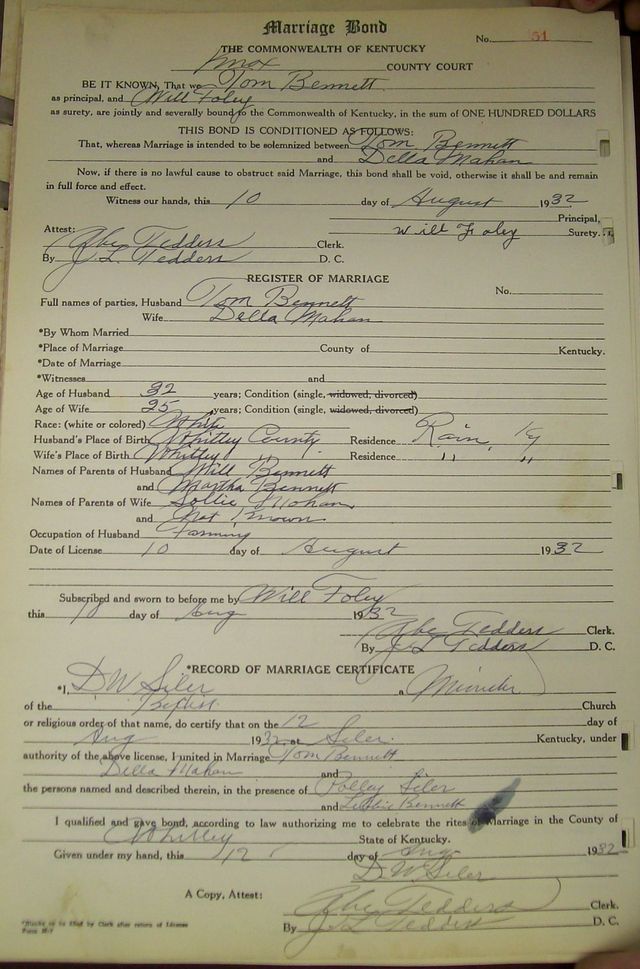 Marriage Bond
No. 51
THE COMMONWEALTH OF KENTUCKY
Knox COUNTY COURT
BE IT KNOWN, That we Tom Bennett
as principal, and Will Foley
as surety, are jointly and severally bound to the Commonwealth of Kentucky, in the sum of ONE HUNDRED DOLLARS
THIS BOND IS CONDITIONED AS FOLLOWS:
That, whereas Marriage is intended to be solemnized between Tom Bennett
and Della Mahan
Now, if there is no lawful cause to obstruct said Marriage, this bond shall be void, otherwise it shall be and remain
in full force and effect.
Witness our hands, this 10 day of August 1932
Principal,
Will Foley Surety.
Attest:
Abe Tedders Clerk.
By J. L. Tedders D. C.
REGISTER OF MARRIAGE
No.
Full names of parties, Husband Tom Bennett
Wife Della Mahan
*By Whom Married
*Place of Marriage County of Kentucky.
*Date of Marriage
*Witnesses and
Age of Husband 32 years; Condition (single, widowed, divorced)
Age of Wife 25 years; Condition (single, widowed, divorced)
Race: (white or colored) White
Husband's Place of Birth Whitley County Residence Rain, Ky
Wife's Place of Birth Whitley " Residence " "
Names of Parents of Husband Will Bennett
and Martha Bennett
Names of Parents of Wife Sollie Mahan
and Not Known
Occupation of Husband Farming
Date of License 10 day of August 1932
Subscribed and sworn to before me by Will Foley
this 10 day of Aug 1932
Abe Tedders Clerk.
By J. L. Tedders D. C.
*RECORD OF MARRIAGE CERTIFICATE
*I, D W Siler a Minister
of the Baptist Church
or religious order of that name, do certify that on the 12 day of
Aug 1932 at Siler Kentucky, under
authority of the above license, I united in Marriage Tom Bennett
Della Mahan and
the persons named and described therein, in the presence of Polley Siler
and Bennett
I qualified and gave bond, according to law authorizing me to celebrate the rites of Marriage in the County of
Whitley State of Kentucky.
Given under my hand, this 12 day of Aug 1932
D. W. Siler
A Copy, Attest:
Abe Tedders Clerk.
By J. L. Tedders D. C.
*Blanks to be filled by Clerk after return of License